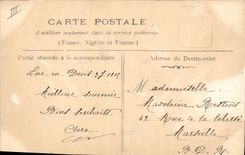 III
CARTE POSTALE
A utiliser seulement dans le service intérieur
(France, Algérie et Tunisie)
Partie réservée à la correspondance
Adresse du Destinataire
Luc en Diois
Meilleur souvenir
Bons souhaits
Clara
Mademoiselle
Madeleine
42 Rue de la liberté
Marseille
B. D. R.